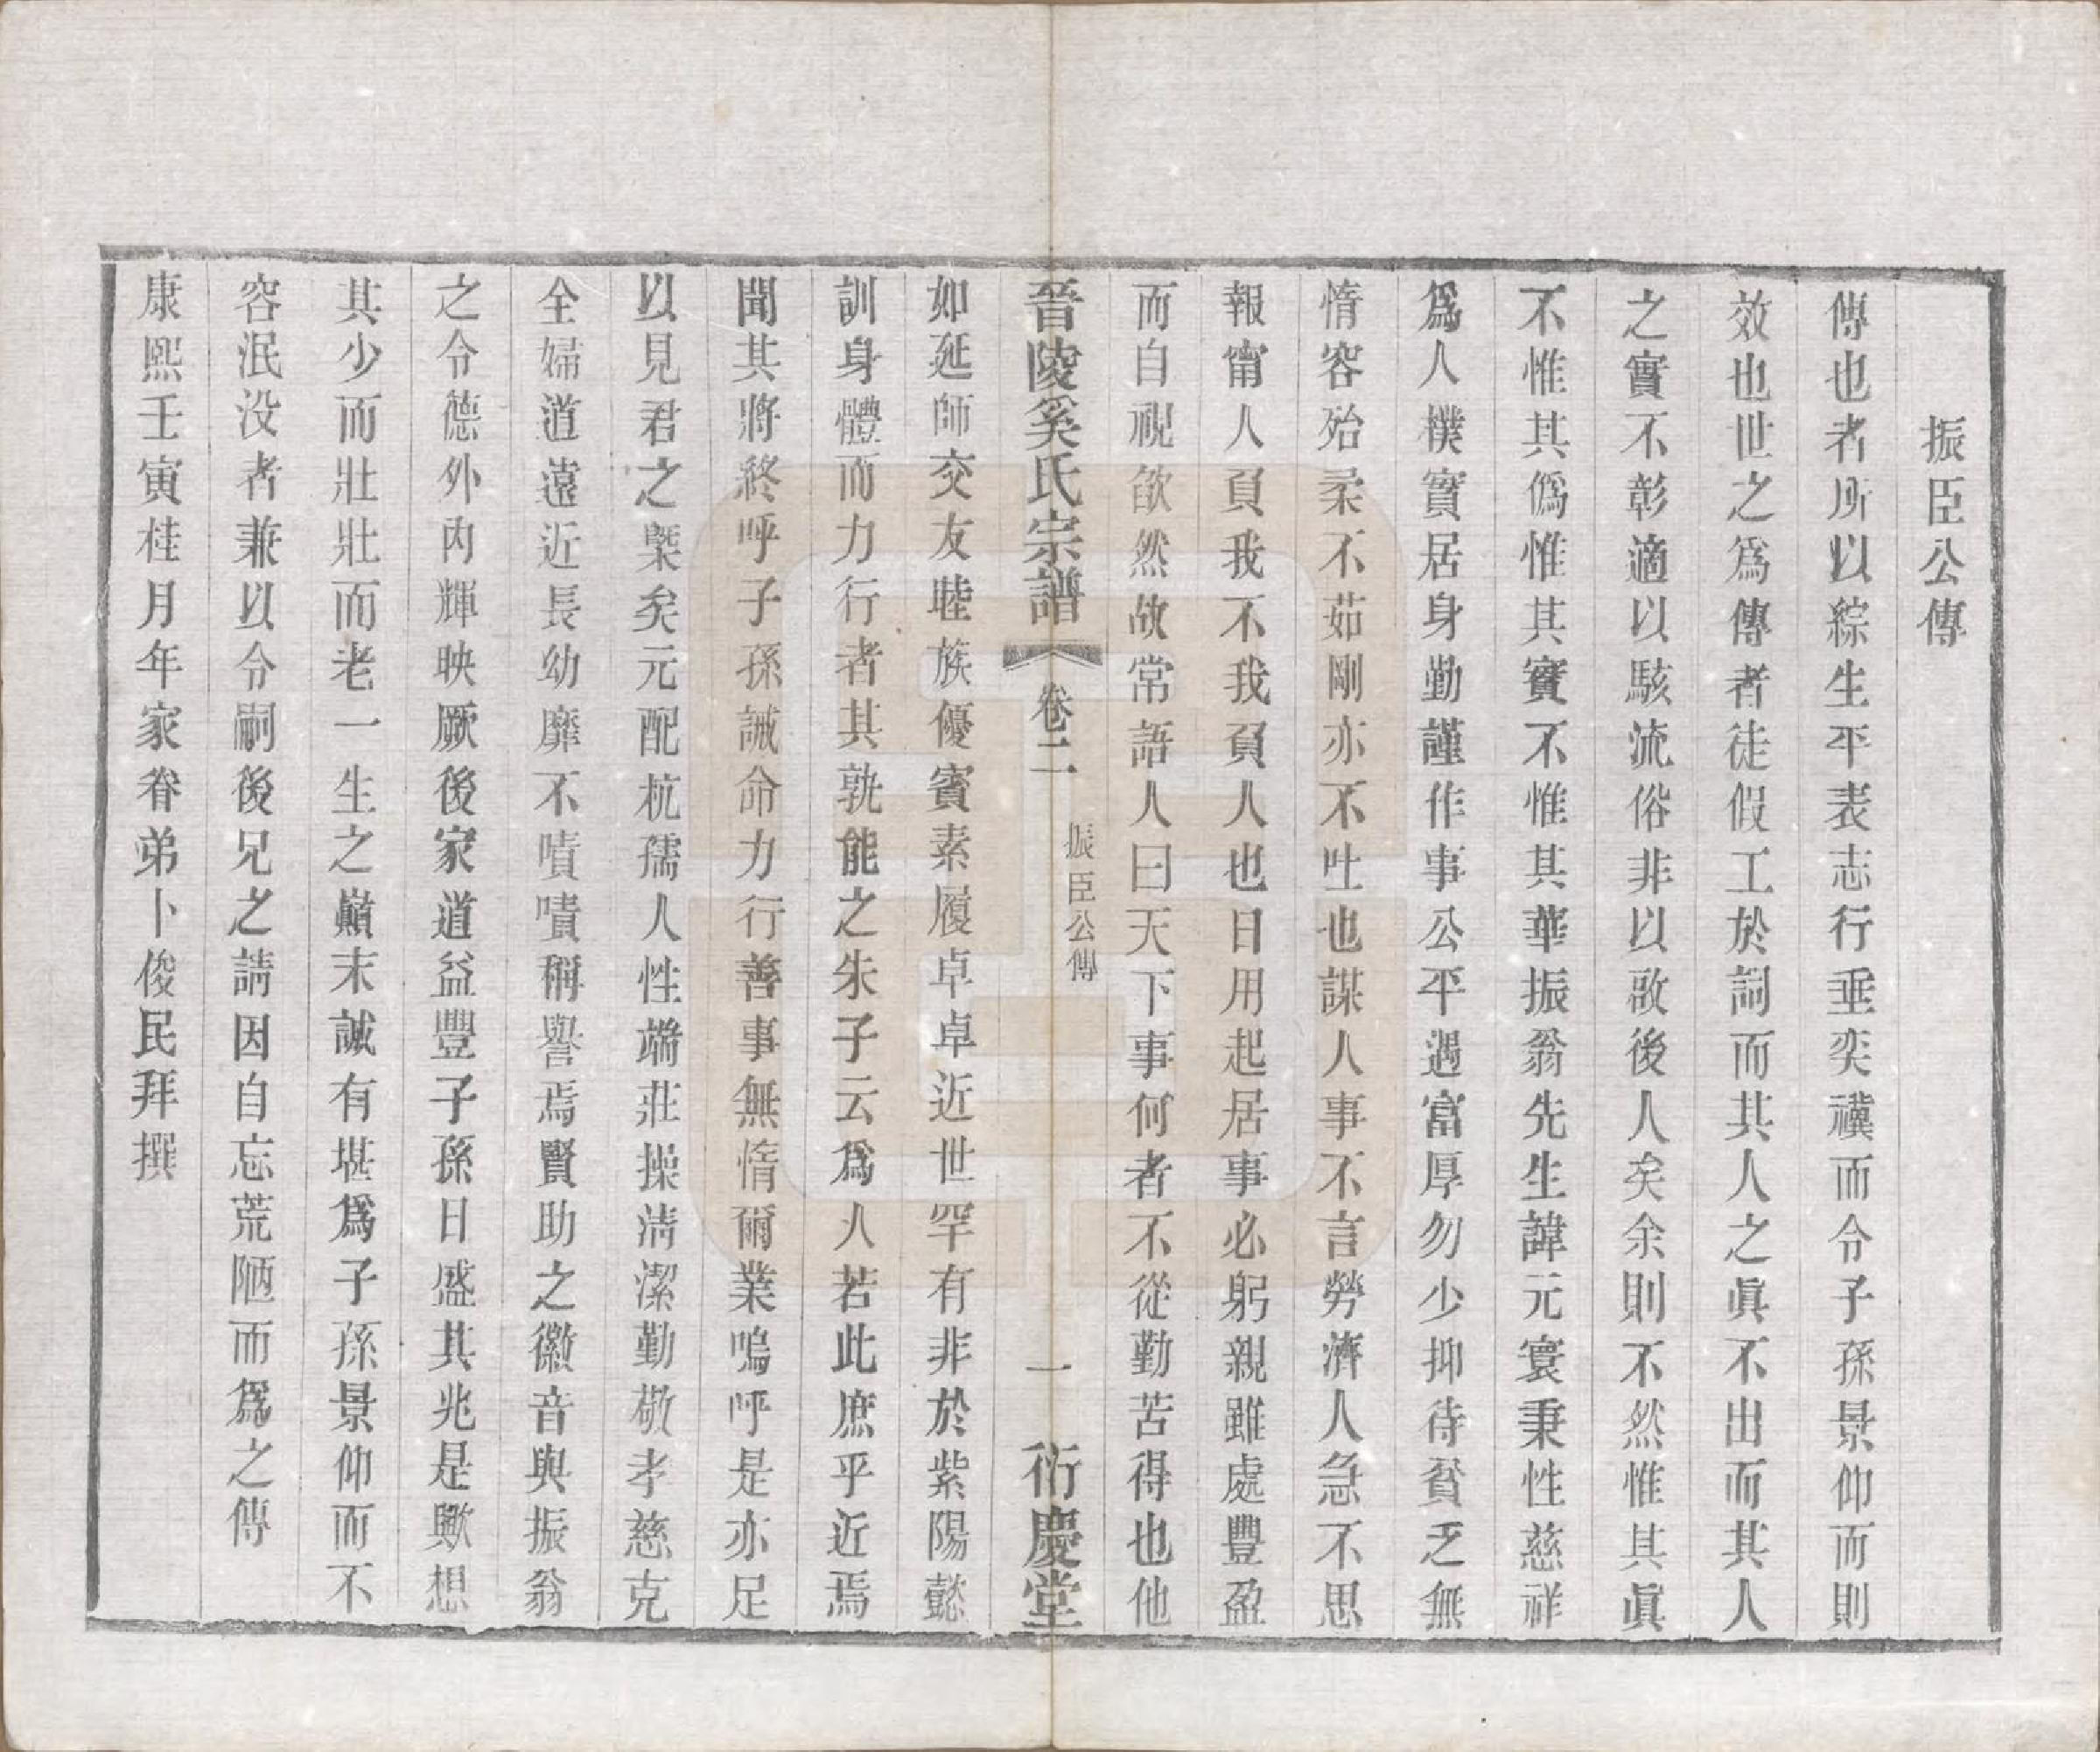 振臣公傳
傳也者所以綜生平表志行垂奕禩而令子孫景仰而則
效也世之爲傳者徒假工於詞而其人之眞不出而其人
之實不彰適以駭流俗非以啟後人矣余則不然惟其眞
不惟其僞惟其實不惟其華振翁先生諱元寰秉性慈祥
爲人樸實居身勤謹作事公平遇富厚勿少抑待貧乏無
惰容殆柔不茹剛亦不吐也謀人事不言勞濟人急不思
報甯人負我不我負人也日用起居事必躬親雖處豐盈
而自視欿然故常語人曰天下事何者不從勤苦得也他
晉陵奚氏宗譜 卷二 振臣公傳 一 衍慶堂
如延師交友睦族優賓素履卓卓近世罕有非於紫陽懿
訓身體而力行者其孰能之朱子云爲人若此庶乎近焉
聞其將終呼子孫誡命力行善事無惰爾業嗚呼是亦足
以見君之槩矣元配杭孺人性端莊操淸潔勤敬孝慈克
全婦道遠近長幼靡不嘖嘖稱譽焉賢助之徽音與振翁
之令德外內輝映厥後家道益豐子孫日盛其兆是歟想
其少而壯壯而老一生之巔末誠有堪爲子孫景仰而不
容泯没者兼以令嗣後兄之請因自忘荒陋而爲之傳
康熙壬寅桂月年家眷弟卜俊民拜撰